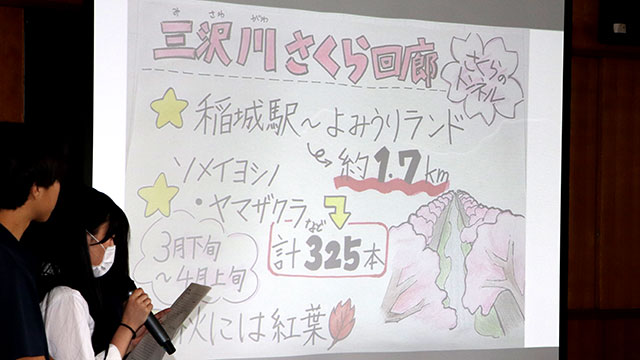 みさわがわ
三沢川さくら回廊
さくらの
トンネル
稲城駅～よみうりランド
約1.7km
ソメイヨシノ
・ヤマザクラなど
計325本
3月下旬
～4月上旬
秋には紅葉